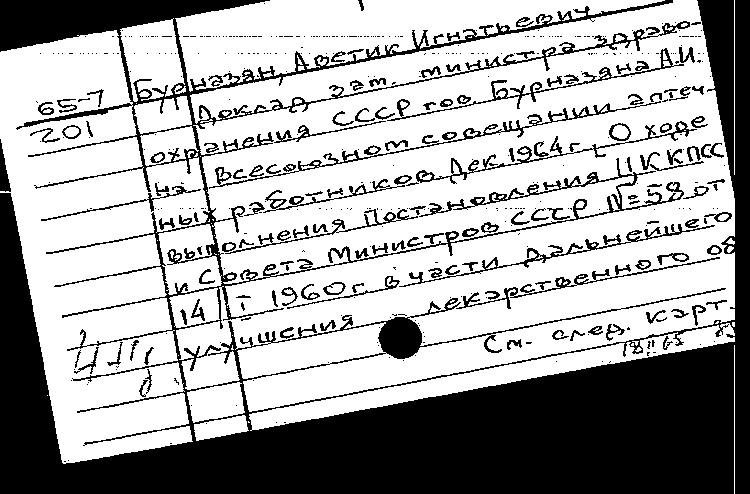 65-7
201
Бурназян, Аветик Игнатьевич.
Доклад зам. министра здраво-
охранения СССР тов Бурназяна А.И.
на Всесоюзном совещании аптеч-
ных работников. Дек. 1964 г. О ходе
выполнения Постановления ЦК КПСС
и Совета Министров СССР №=58 от
14/I 1960 г. в части дальнейшего
улучшения лекарственного об
См. след. карт.